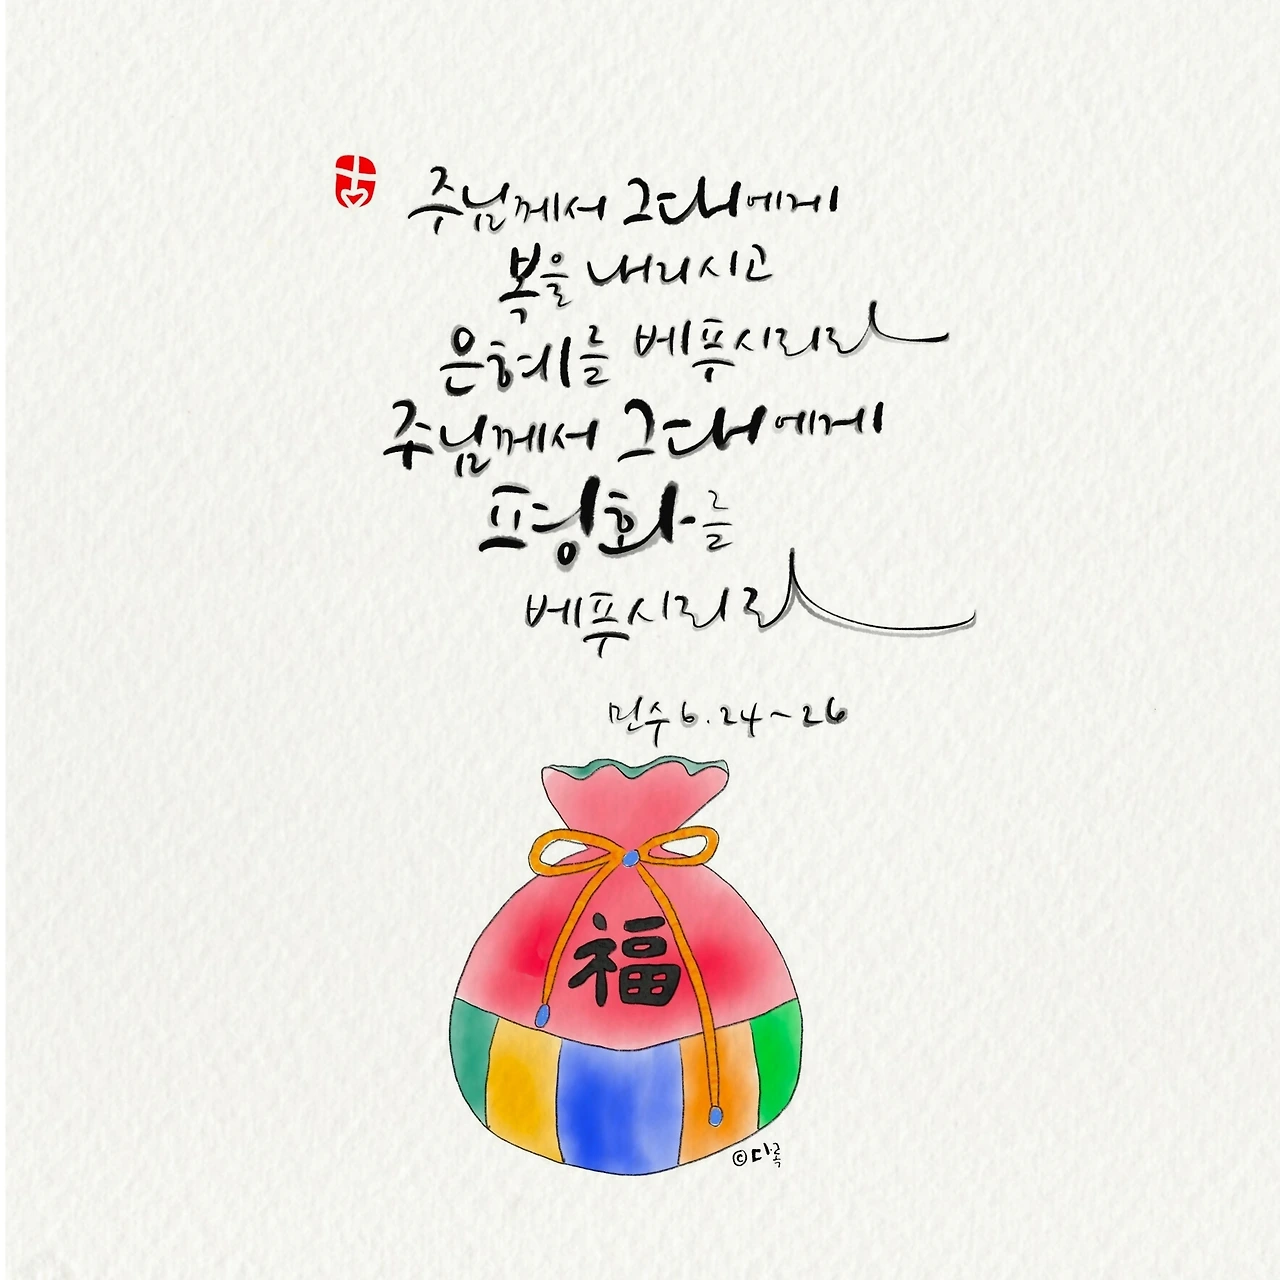 주님께서 그대에게
복을 내리시고
은혜를 베푸시리라
주님께서 그대에게
평화를
베푸시리라
민수 6.24~26
福
©다록